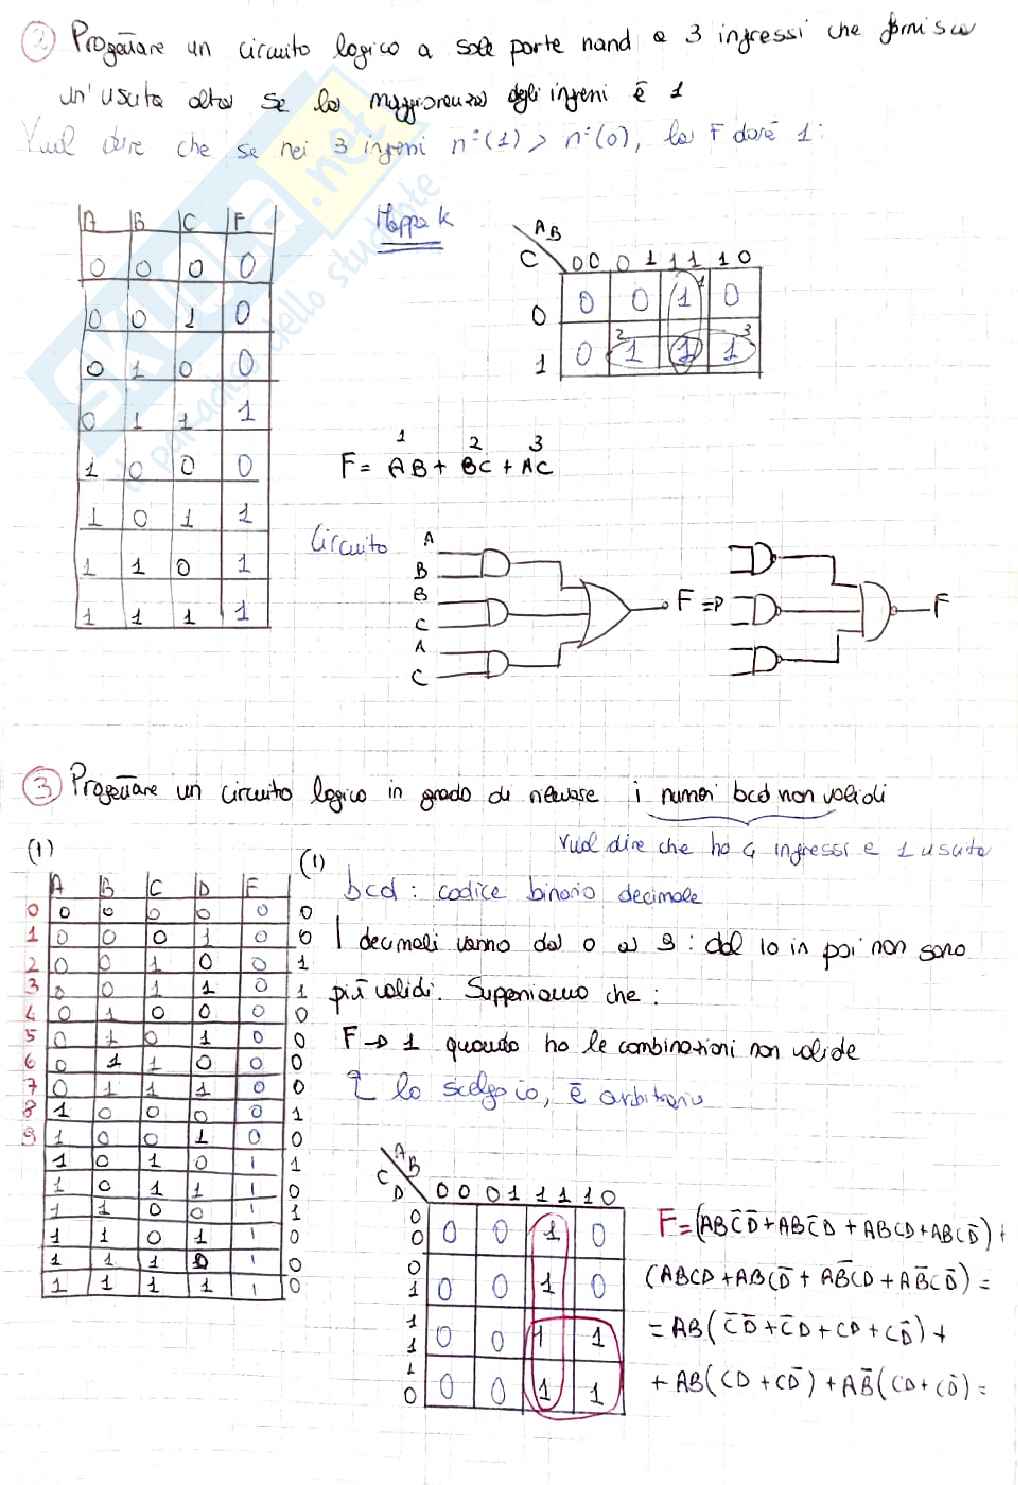 ② Progettare un circuito logico a sole porte nand a 3 ingressi che fornisca
un'uscita alta se la maggioranza degli ingressi è 1
Vuol dire che se nei 3 ingressi n°(1) > n°(0), la F darà 1:
A B C F
0 0 0 0
0 0 1 0
0 1 0 0
0 1 1 1
1 0 0 0
1 0 1 1
1 1 0 1
1 1 1 1
Mappa K
AB
C 00 01 11 10
0 0 0 1 0
1 0 1 1 1
1 2 3
F = AB + BC + AC
Circuito
A
B
B
C
A
C
F ⇒
F
③ Progettare un circuito logico in grado di rilevare i numeri bcd non validi
vuol dire che ho 4 ingressi e 1 uscita
(1)
A B C D F
0 0 0 0 0 0 0
1 0 0 0 1 0 0
2 0 0 1 0 0 1
3 0 0 1 1 0 1
4 0 1 0 0 0 0
5 0 1 0 1 0 0
6 0 1 1 0 0 0
7 0 1 1 1 0 0
8 1 0 0 0 0 1
9 1 0 0 1 0 0
1 0 1 0 1 1
1 0 1 1 1 0
1 1 0 0 1 1
1 1 0 1 1 0
1 1 1 0 1 0
1 1 1 1 1 0
(1)
bcd : codice binario decimale
I decimali vanno da 0 a 9 : dal 10 in poi non sono
più validi. Supponiamo che :
F → 1 quando ho le combinazioni non valide
lo scelgo io, è arbitrario
AB
CD 00 01 11 10
00 0 0 1 0
01 0 0 1 0
11 0 0 1 1
10 0 0 1 1
F = (ABC̄D̄ + ABC̄D + ABCD + ABCD̄) +
(ABCD + ABCD̄ + AB̄CD + AB̄CD̄) =
= AB(C̄D̄ + C̄D + CD + CD̄) +
+ AB(CD + CD̄) + AB̄(CD + CD̄) =
SKUOLA.net
il paradiso dello studente